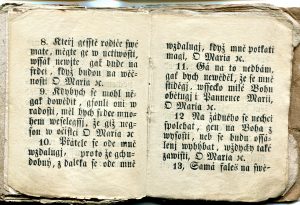 8. Kteřj gessté rodiče swé
mate, mégte ge w uctiwosti,
wssak newjte gak bude na
srdci, když budou na wěč-
nosti O Maria ꝛc.
9. Kdybych se mohl ně-
gak dowědit, gsauli oni w
radosti, měl bych srdce mno-
hem weselegssj, že giž neg-
sau w očistci O Maria ꝛc.
10. Přátelé se ode mně
wzdalugj, proto že gchu-
dobný, z daleka se ode mně
wzdalugj, když mně potkati
magj, O Maria ꝛc.
11. Gá na to nedbám,
gak bych newěděl, že se mně
stidegj, wssecko milé Bohu
obětugi i Pannence Marii,
O Maria ꝛc.
12 Na žádného se nechci
spolehat, gen na Boha z
wýsosti, neb se budu ossá-
lenj wyhýbat, wždycky také
zawisti, O Maria ꝛc.
13, Samá faleš na swě-